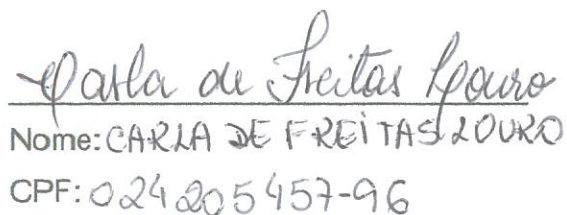 Carla de Freitas Louro
Nome: CARLA DE FREITAS LOURO
CPF: 024205457-96